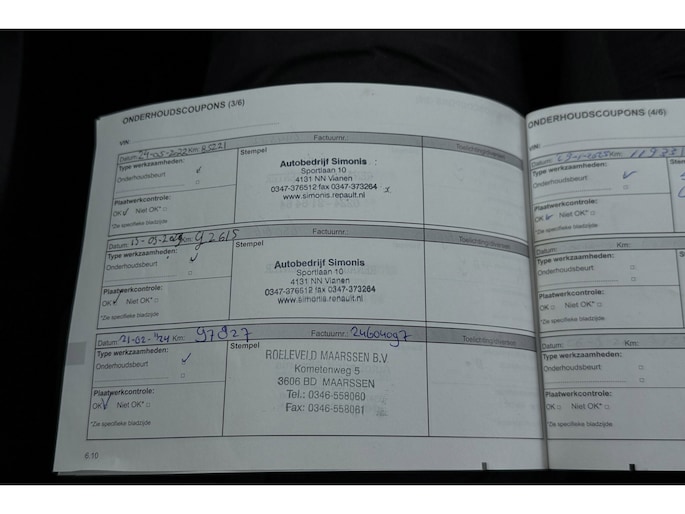 ONDERHOUDSCOUPONS (3/6)
VIN:
Datum: Km: Factuurnr.: Toelichting/diversen
Type werkzaamheden:
Onderhoudsbeurt
Plaatwerkcontrole:
OK Niet OK*
*Zie specifieke bladzijde
Stempel
Autobedrijf Simonis
Sportlaan 10
4131 NN Vianen
0347-376512 fax 0347-373264
www.simonis.renault.nl
Datum: Km: 92615 Factuurnr.: Toelichting/diversen
Type werkzaamheden:
Onderhoudsbeurt
Plaatwerkcontrole:
OK Niet OK*
*Zie specifieke bladzijde
Stempel
Autobedrijf Simonis
Sportlaan 10
4131 NN Vianen
0347-376512 fax 0347-373264
www.simonis.renault.nl
Datum: 21-02- Km: 97827 Factuurnr.: 24604097 Toelichting/diversen
Type werkzaamheden:
Onderhoudsbeurt
Plaatwerkcontrole:
OK Niet OK*
*Zie specifieke bladzijde
Stempel
ROELEVELD MAARSSEN B.V.
Kometenweg 5
3606 BD MAARSSEN
Tel.: 0346-558060
Fax: 0346-558061
6.10
ONDERHOUDSCOUPONS (4/6)
VIN:
Datum: Km:
Type werkzaamheden:
Onderhoudsbeurt
Plaatwerkcontrole:
OK Niet OK*
*Zie specifieke bladzijde
Datum: Km:
Type werkzaamheden:
Onderhoudsbeurt
Plaatwerkcontrole:
OK Niet OK*
*Zie specifieke bladzijde
Datum: Km:
Type werkzaamheden:
Onderhoudsbeurt
Plaatwerkcontrole:
OK Niet OK*
*Zie specifieke bladzijde